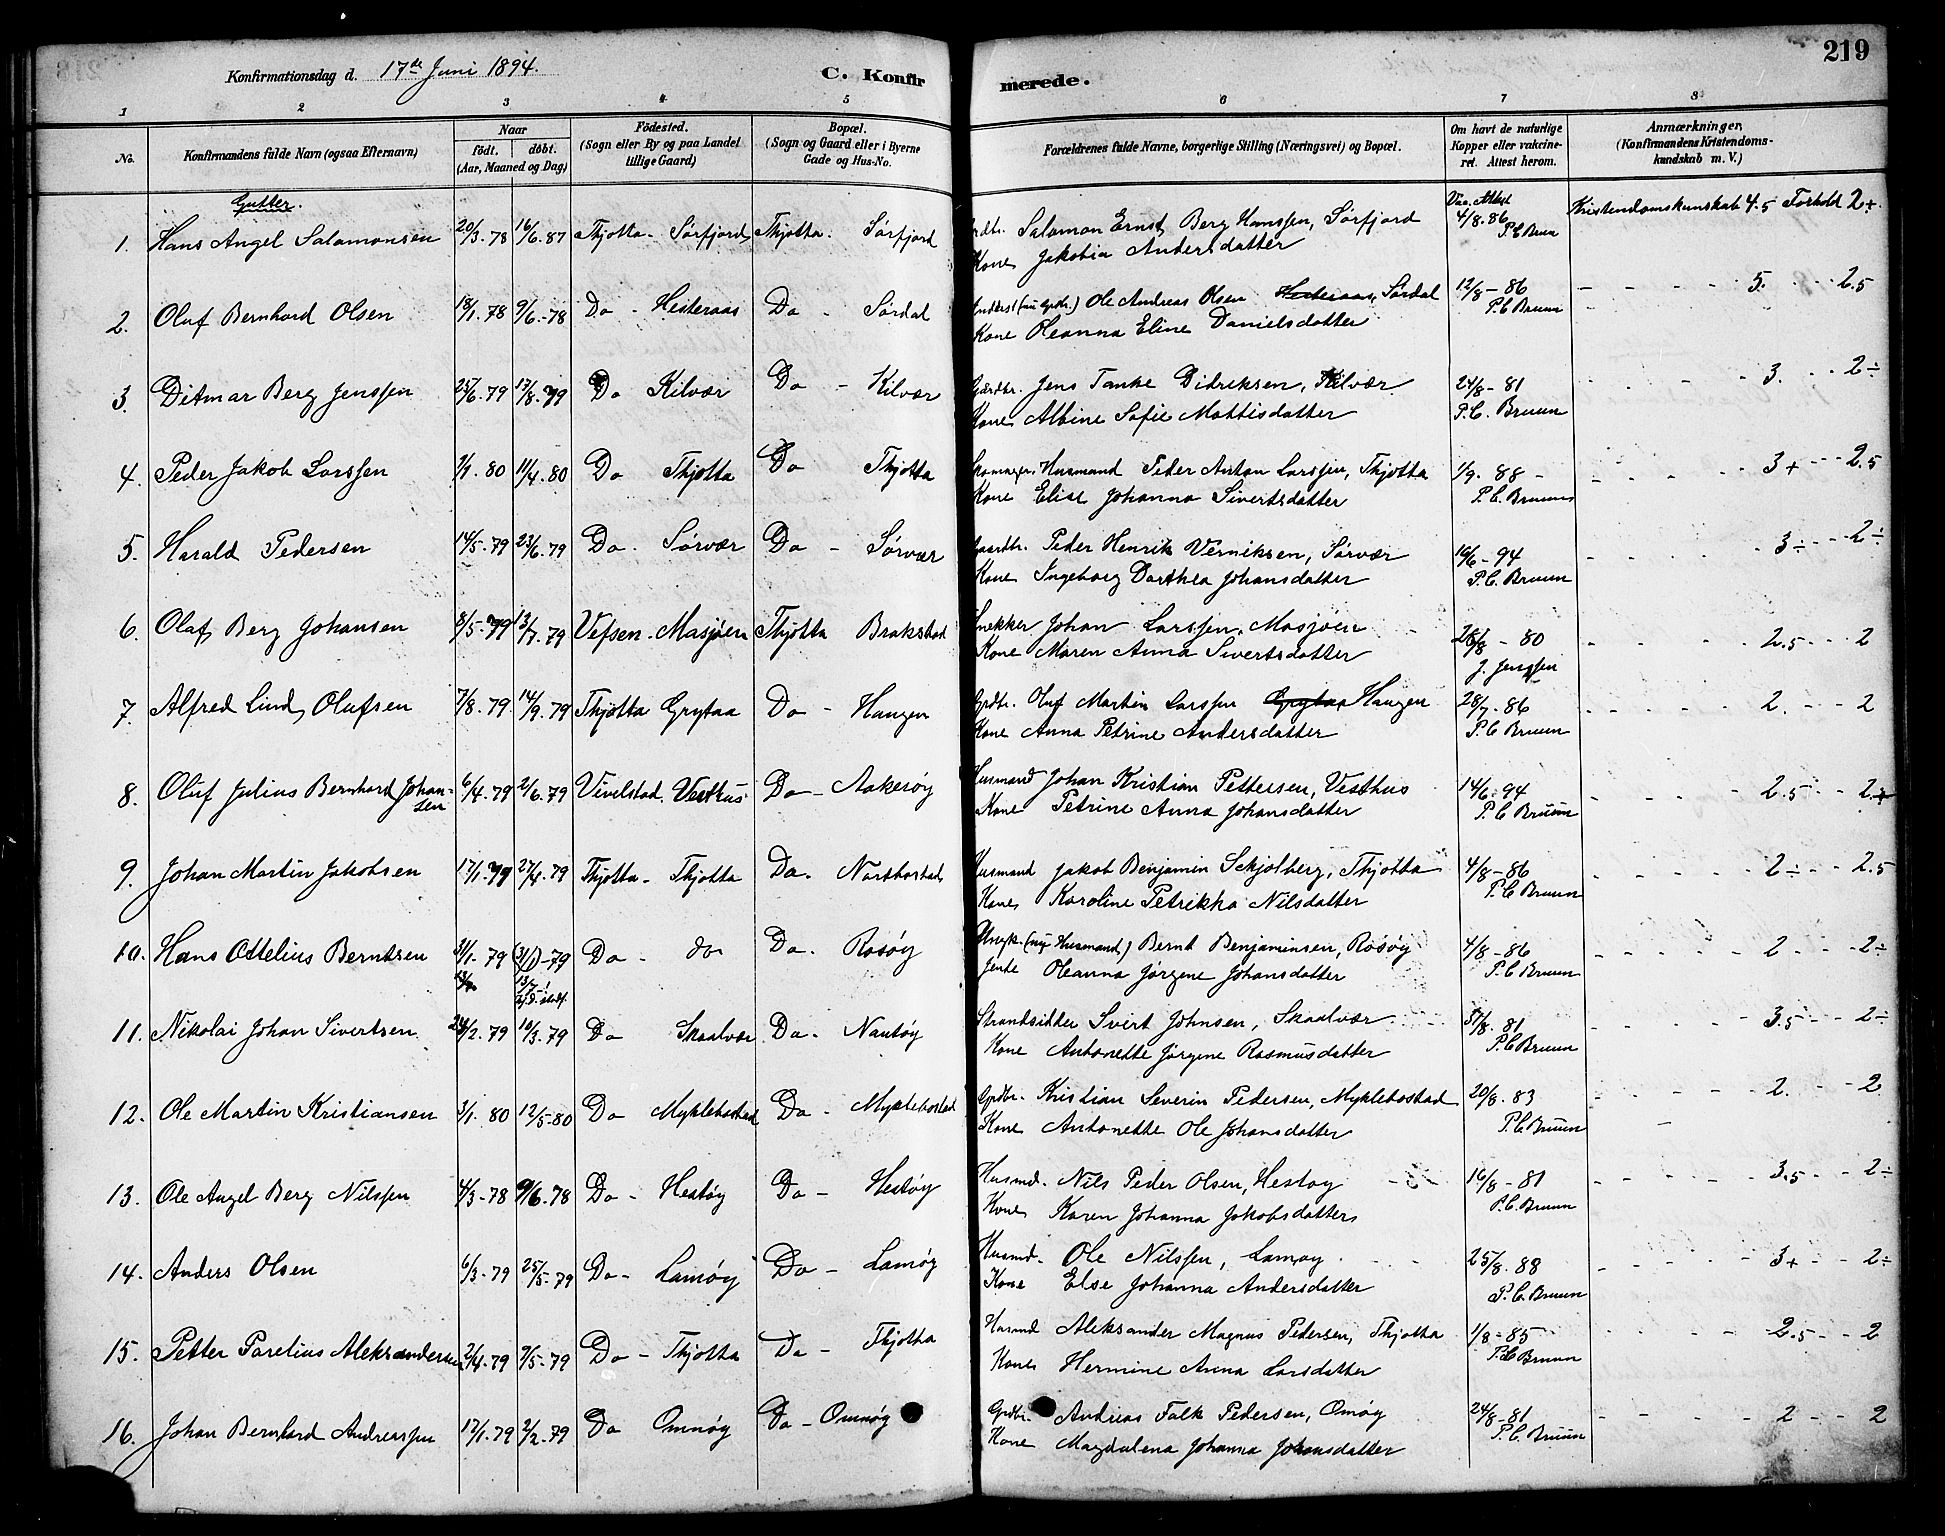 219
Konfirmationsdag d. 17de Juni 1894. C. Konfirmerede.
1 2 3 4 5 6 7 8
No. Konfirmandens fulde Navn (ogsaa Efternavn) Naar födt. döbt. (Aar, Maaned og Dag) Födested. (Sogn eller By og paa Landet tillige Gaard) Bopæl. (Sogn og Gaard eller i Byerne Gade og Hus-No. Forældrenes fulde Navne, borgerlige Stilling (Næringsvei) og Bopæl. Om havt de naturlige Kopper eller vaccineret. Attest herom. Anmærkninger, (Konfirmandens Kristendomskundskab m. V.)
Gutter.
1. Hans Angel Salomonsen 20/3.78 16/6.87 Thjotta - Sørfjord Thjotta. Sørfjord Salomon Ernst Berg Hanssen, Sørfjord Vac. Attest 4/8.86 Kristendomskunskab 4.5 Forhold 2+
Kone Jakobia Andersdatter P.C. Bruun
2. Oluf Bernhard Olsen 18/1.78 9/6.-78 Do - Hesteraas Do - Sørdal (nu Gdr.) Ole Andreas Olsen Hesteraas, Sørdal 12/8-86 5. 2.5
Kone Oleanna Eline Danielsdatter P.C Bruun
3. Ditmar Berg Jenssen 25/6.79 17/8.79 Do Kilvær Do - Kilvær Gårdbr. Jens Tanke Didriksen, Kilvær 24/8-81 3. 2÷
Kone Albine Sofie Mattisdatter P.C. Bruun
4. Peder Jakob Larssen 1/1.80 11/4.80 Do Thjotta Do Thjotta Husmand Peder Anton Larssen, Thjotta 1/9.88 - 3+ 2.5
Kone Elise Johanna Sivertsdatter P.C. Bruun
5. Harald Pedersen 14/5.79 23/6.79 Do. Sørvær Do - Sørvær Gaardbr. Peder Henrik Verniksen, Sørvær 16/6-94 3÷ 2÷
Kone Ingeborg Dorthea Johansdatter P.C. Bruun
6. Olaf Berg Johansen 8/5.79 13/7.79 Vefsen. Masjøen Thjotta Brakstad Snekker Johan Larssen, Masjøen 26/8-80 2.5 2
Kone Maren Anna Sivertsdatter J. Jenssen
7. Alfred Lind Olufsen 7/8.79. 14/9.79 Thjøtta Grytaa Do - Haugen Gdbr. Oluf Martin Larssen Grytaa Haugen 28/7.86 2. 2
Kone Anna Petrine Andersdatter P.C Bruun
8. Oluf Julius Bernhard Johansen 6/4.79 2/6.79 Vivelstad. Vesthus Do - Aakerøy Husmand Johan Kristian Pettersen, Vesthus 14/6.94 2.5 2.+
Kone Petrine Anna Johansdatter P.C Bruun
9. Johan Martin Jakobsen 17/1.79 27/4.79 Thjotta - Thjotta Do. Nordbostad Husmand Jakob Benjamin Schjolberg, Thjotta 4/8-86 2÷ 2.5
Kone Karoline Petrikka Nilsdatter P.C. Bruun
10. Hans Ottelius Berntsen 31/1.79 (31/1)-79 Do - do Do. Rosøy (nu Husmand) Bernt Benjaminsen, Rosøy 4/8-86 2 2÷
Jente Oleanna Jørgene Johansdatter P.C. Bruun
11. Nikolai Johan Sivertsen 24/2.79 10/3.79 Do Skaalvær Do. Nautøy Strandsidder Sivert Johnsen, Skaalvær 31/8.81 3.5 2÷
Kone Antonette Jørgene Rasmusdatter P.C Bruun
12. Ole Martin Kristiansen 3/1.80 12/5-80 Do Myklebostad Do - Myklebostad Gdbr. Kristian Severin Pedersen, Myklebostad 20/8.83 2. 2
Kone Antonette Ole Johansdatter P.C Bruun
13. Ole Angel Berg Nilssen 4/3-78 9/6.78 Do - Hestøy Do - Hestøy Husmd. Nils Peder Olsen, Hestøy 16/8-81 3.5 2÷
Kone Karen Johanna Jakobsdatter P.C. Bruun
14. Anders Olsen 6/3-79 25/5-79 Do - Lamøy Do - Lamøy Husmd. Ole Nilssen, Lamøy 25/8.88 3+ 2÷
Kone Else Johanna Andersdatter P.C. Bruun
15. Petter Parelius Aleksandersen 2/4.79 7/5-79 Do - Thjotta Do - Thjotta Husmd Aleksander Magnus Pedersen, Thjotta 1/8-85 2.5 2
Kone Hermine Anna Larsdatter P.C Bruun
16. Johan Bernhard Andreassen 17/1.79 2/2.79 Do Omnøy Do - Omnøy Gdbr. Andreas Falk Pedersen, Omøy 24/8-81 2 2
Kone Magdalena Johanna Johansdatter P.C. Bruun